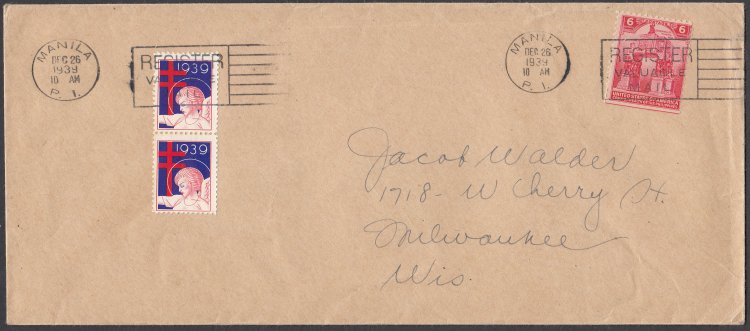 MANILA
DEC 26
1939
10 AM
P. I.
REGISTER
VALUABLE
1939
1939
MANILA
DEC 26
1939
10 AM
P. I.
REGISTER
VALUABLE
MAIL
6 6
UNITED STATES OF AMERICA
Jacob Walder
1718 - W Cherry St.
Milwaukee
Wis.